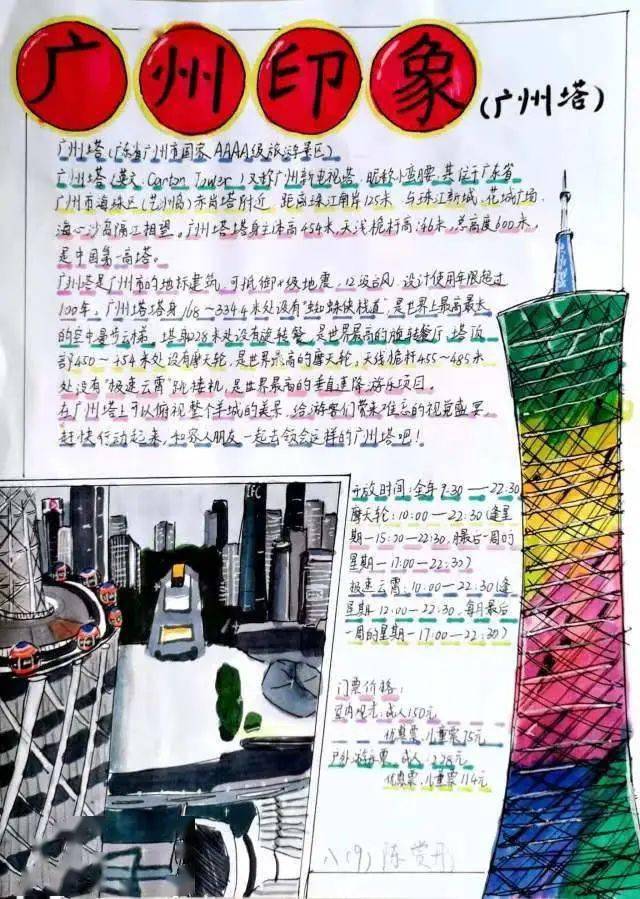 广州印象
(广州塔)
广州塔(广东省广州市国家AAAA级旅游景区)
广州塔(英文:Canton Tower)又称广州新电视塔,昵称小蛮腰,其位于广东省
广州市海珠区(艺洲岛)赤岗塔附近,距离珠江南岸125米,与珠江新城、花城广场、
海心沙岛隔江相望。广州塔塔身主体高454米,天线桅杆高146米,总高度600米,
是中国第一高塔。
广州塔是广州市的地标建筑,可抵御8级地震,12级台风,设计使用年限超过
100年。广州塔塔身168~334.4米处设有"蜘蛛侠栈道",是世界上最高最大
的空中漫步云梯,塔身228米处设有旋转餐厅,是世界最高的旋转餐厅,塔顶
部450~454米处设有摩天轮,是世界最高的摩天轮,天线桅杆455~485米
处设有"极速云霄"跳楼机,是世界最高的垂直速降游乐项目。
在广州塔上可以俯视整个羊城的美景,给游客们带来难忘的视觉盛宴,
赶快行动起来,和家人朋友一起去领会这样的广州塔吧!
开放时间:全年9:30—22:30
摩天轮:10:00—22:30(逢星
期一15:00—22:30,每月最后一周的
星期一17:00—22:30)
极速云霄:10:00—22:30(逢
星期一12:00—22:30,每月最后
一周的星期一17:00—22:30)
门票价格:
室内观光:成人150元
优惠票、儿童票75元
户外游玩票:成人:228元
优惠票、儿童票114元
八(9) 陈赏丹
IFC